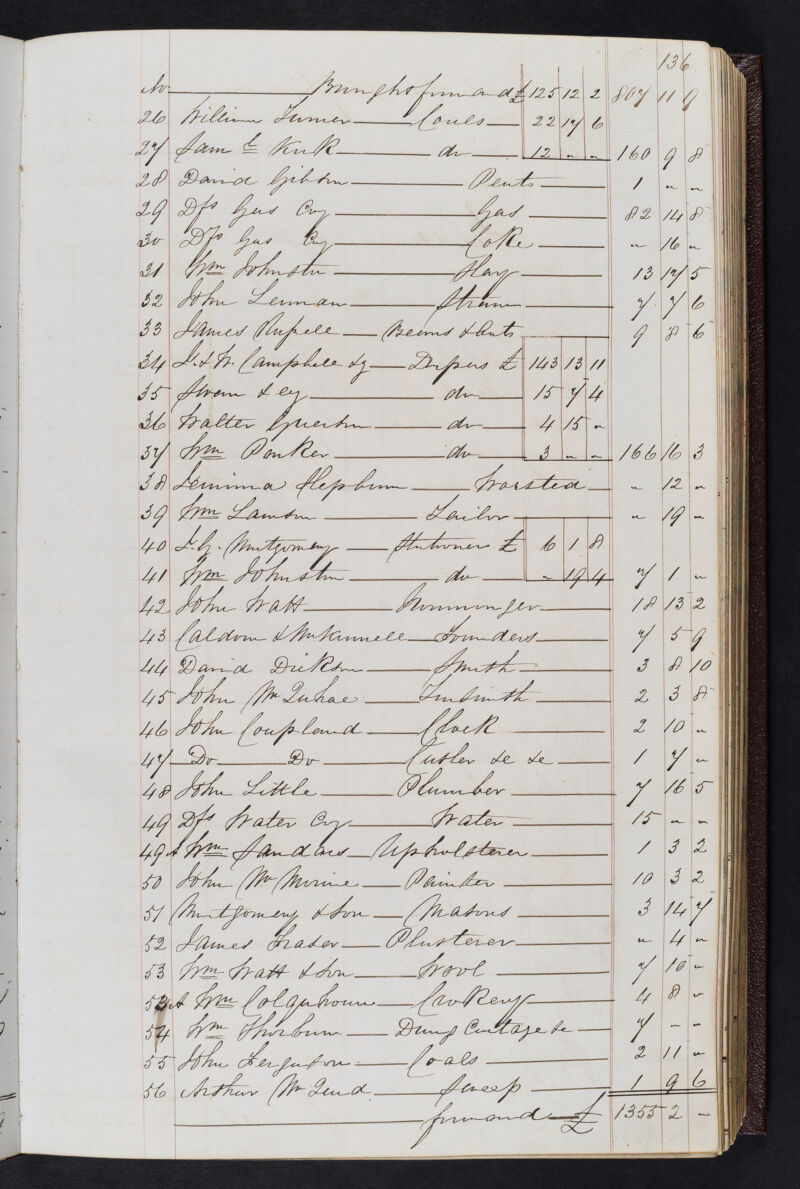 136
No Brought forward £ 125 12 2 807 11 9
26 William Turner Coals 22 17 6
27 Saml Kirk do 12 " " 160 9 8
28 David Gibson Peats 1 " "
29 Dfs Gas Coy Gas 82 14 8
30 Dfs Gas Coy Coke " 16 "
31 Wm Johnston Hay 13 17 5
32 John Lennan Straw 7 7 6
33 James Russell Beans & Oats 9 8 6
34 J. & W. Campbell & Cy Drapers £ 143 13 11
35 Swan & Cy do 15 7 4
36 Walter do 4 15 "
37 Wm do 3 " " 166 16 3
38 Jemima Hepburn Worsted " 12 "
39 Wm Lawson Tailor " 19 "
40 Montgomery Stationer £ 6 1 8
41 Wm Johnston do " 19 4 7 1 "
42 John Watt Ironmonger 18 13 2
43 Caldow & McKinnell Founders 7 5 9
44 David Dickson Smith 3 8 10
45 John McQuhae Tinsmith 2 3 8
46 John Coupland Clock 2 10 "
47 Do Do Cutler &c &c 1 7 "
48 John Little Plumber 7 16 5
49 Dfs Water Coy Water 15 " "
49 A Wm Upholsterer 1 3 2
50 John McMorine Painter 10 3 2
51 Montgomery & Son Masons 3 14 7
52 James Fraser Plasterer " 4 "
53 Wm Watt & Son Wool 7 10 "
53 A Wm Colquhoun Crokery 4 8 "
54 Wm Thorburn Dung Cartage &c 7 " "
55 John Ferguson Coals 2 11 "
56 Arthur McQuid Sweep 1 9 6
forward £ 1355 2 "